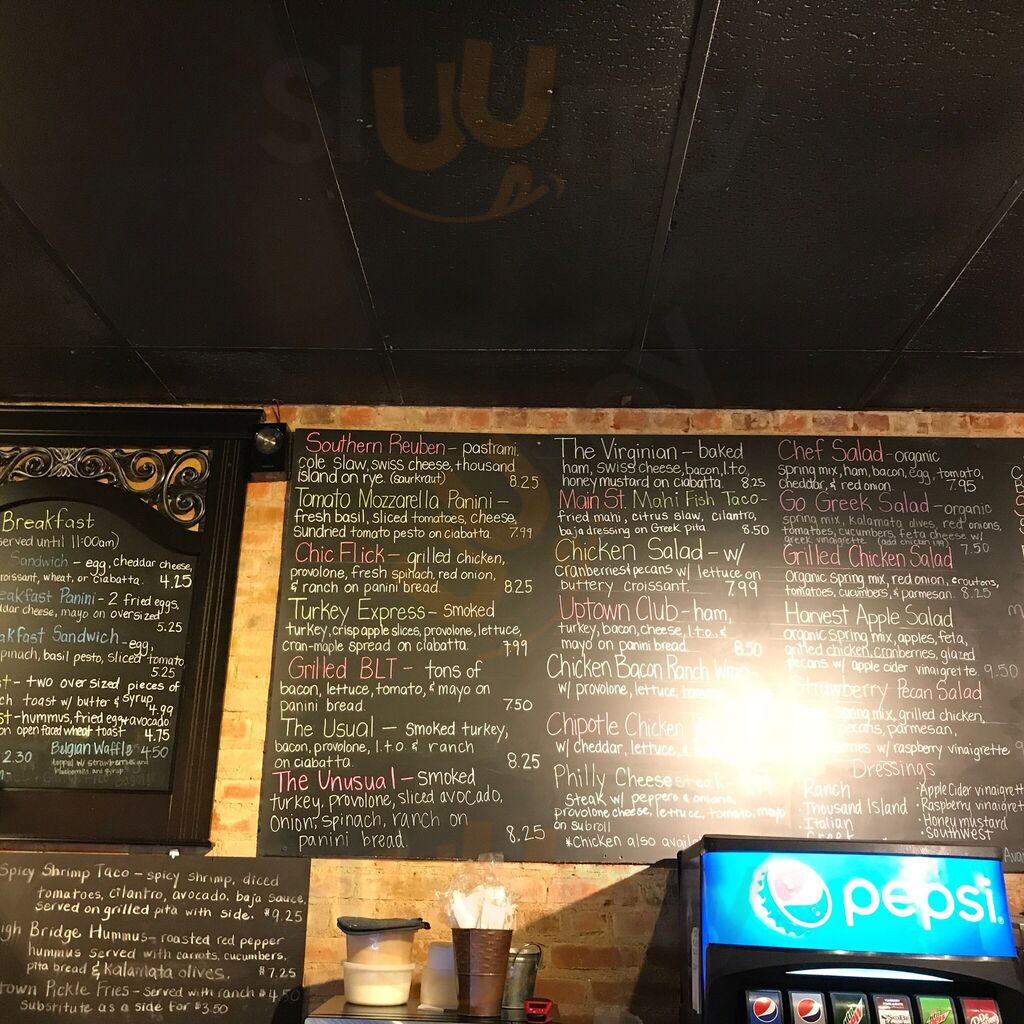 sluurpy
Breakfast
served until 11:00am)
Sandwich - egg, cheddar cheese,
croissant, wheat, or ciabatta. 4.25
eakfast Panini - 2 fried eggs,
cheese, mayo on oversized
5.25
akfast Sandwich - egg,
spinach, basil pesto, sliced tomato,
5.25
- two oversized pieces of
toast w/ butter & syrup
4.99
- hummus, fried egg & avocado
on open faced wheat toast 4.75
2.30 Belgian Waffle 4.50
topped w/ strawberries and
blueberries and syrup
Spicy Shrimp Taco - spicy shrimp, diced
tomatoes, cilantro, avocado, baja sauce,
served on grilled pita with side. $9.25
igh Bridge Hummus - roasted red pepper
hummus served with carrots, cucumbers,
pita bread & Kalamata olives. $7.25
town Pickle Fries - served with ranch $4.50
substitute as a side for $3.50
Southern Reuben - pastrami,
cole slaw, swiss cheese, thousand
island on rye. (saurkraut) 8.25
Tomato Mozzarella Panini -
fresh basil, sliced tomatoes, cheese,
sundried tomato pesto on ciabatta. 7.99
Chic Flick - grilled chicken,
provolone, fresh spinach, red onion,
& ranch on panini bread. 8.25
Turkey Express - smoked
turkey, crisp apple slices, provolone, lettuce,
cran-maple spread on ciabatta. 7.99
Grilled BLT - tons of
bacon, lettuce, tomato, & mayo on
panini bread. 7.50
The Usual - smoked turkey,
bacon, provolone, l.t.o. & ranch
on ciabatta. 8.25
The Unusual - smoked
turkey, provolone, sliced avocado,
onion, spinach, ranch on
panini bread. 8.25
The Virginian - baked
ham, swiss cheese, bacon, l.t.o,
honey mustard on ciabatta. 8.25
Main St. Mahi Fish Taco -
fried mahi, citrus slaw, cilantro,
baja dressing on Greek pita 8.50
Chicken Salad - w/
cranberries & pecans w/ lettuce on
buttery croissant. 7.99
Uptown Club - ham,
turkey, bacon, cheese, l.t.o. &
mayo on panini bread. 8.50
Chicken Bacon Ranch Wrap
w/ provolone, lettuce,
Chipotle Chicken
w/ cheddar, lettuce, &
Philly Cheesesteak
steak w/ peppers & onions,
provolone cheese, lettuce, tomato, mayo
on subroll
*Chicken also available
Chef Salad - organic
spring mix, ham, bacon, egg, tomato,
cheddar, & red onion. 7.95
Go Greek Salad - organic
spring mix, kalamata olives, red onions,
tomatoes, cucumbers, feta cheese w/
greek vinaigrette (add chicken) 7.50
Grilled Chicken Salad
organic spring mix, red onion, croutons,
tomatoes, cucumbers, & parmesan. 8.25
Harvest Apple Salad
organic spring mix, apples, feta,
grilled chicken, cranberries, glazed
pecans w/ apple cider vinaigrette 9.50
Strawberry Pecan Salad
spring mix, grilled chicken,
pecans, parmesan,
w/ raspberry vinaigrette 9
Dressings
Ranch
·Thousand Island
·Italian
·Apple Cider vinaigrett
·Raspberry vinaigre
·Honey mustard
·Southwest
pepsi